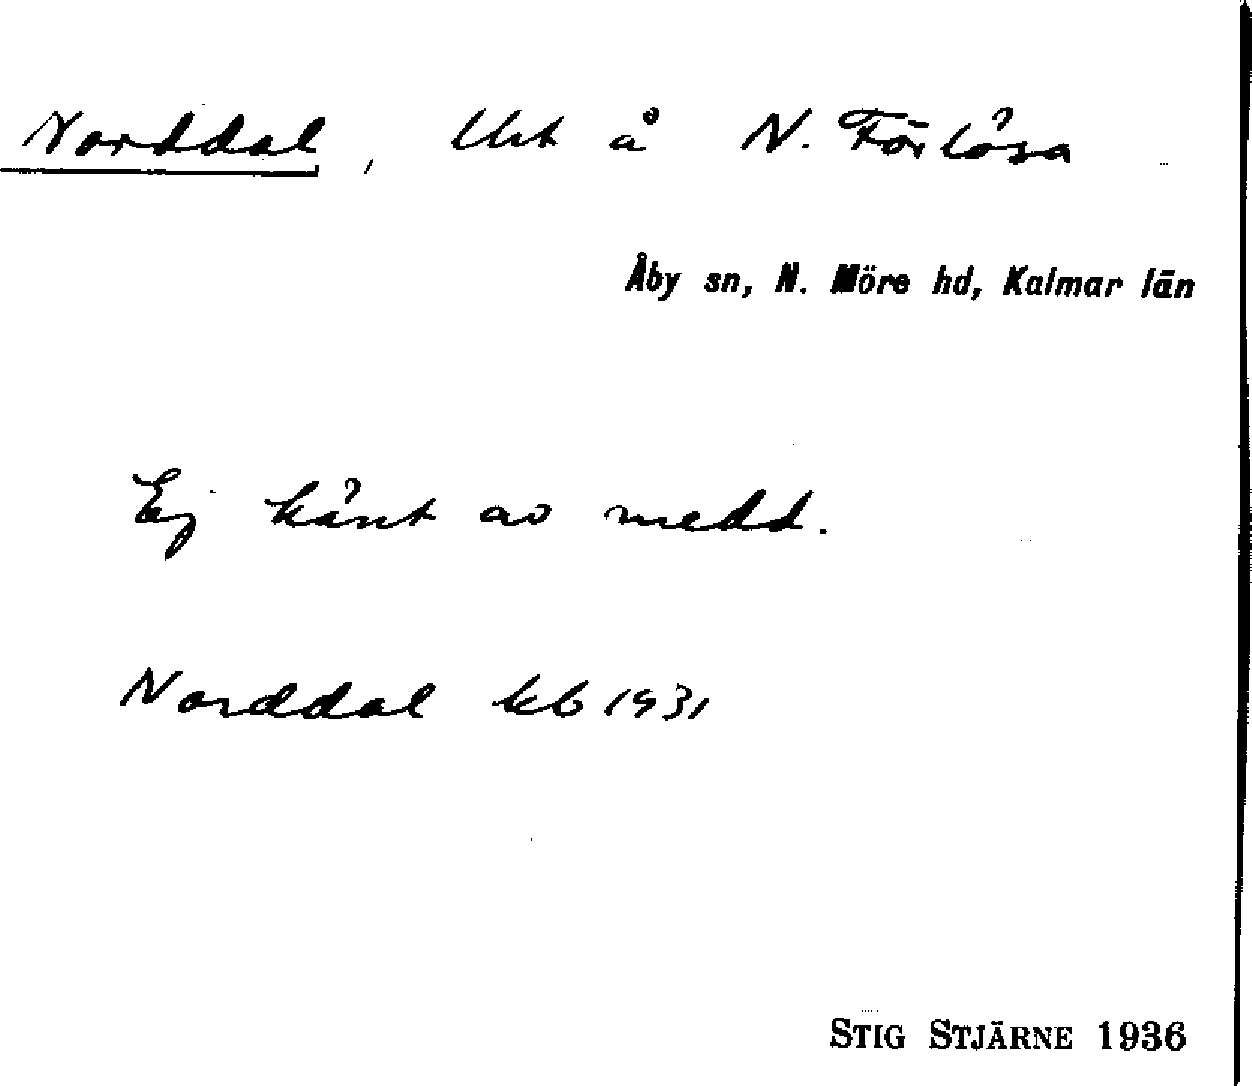 Norddal, Uht å N. Förlösa
Åby sn, N. Möre hd, Kalmar län
Ej känt av medd.
Norddal kb 1931
STIG STJÄRNE 1936